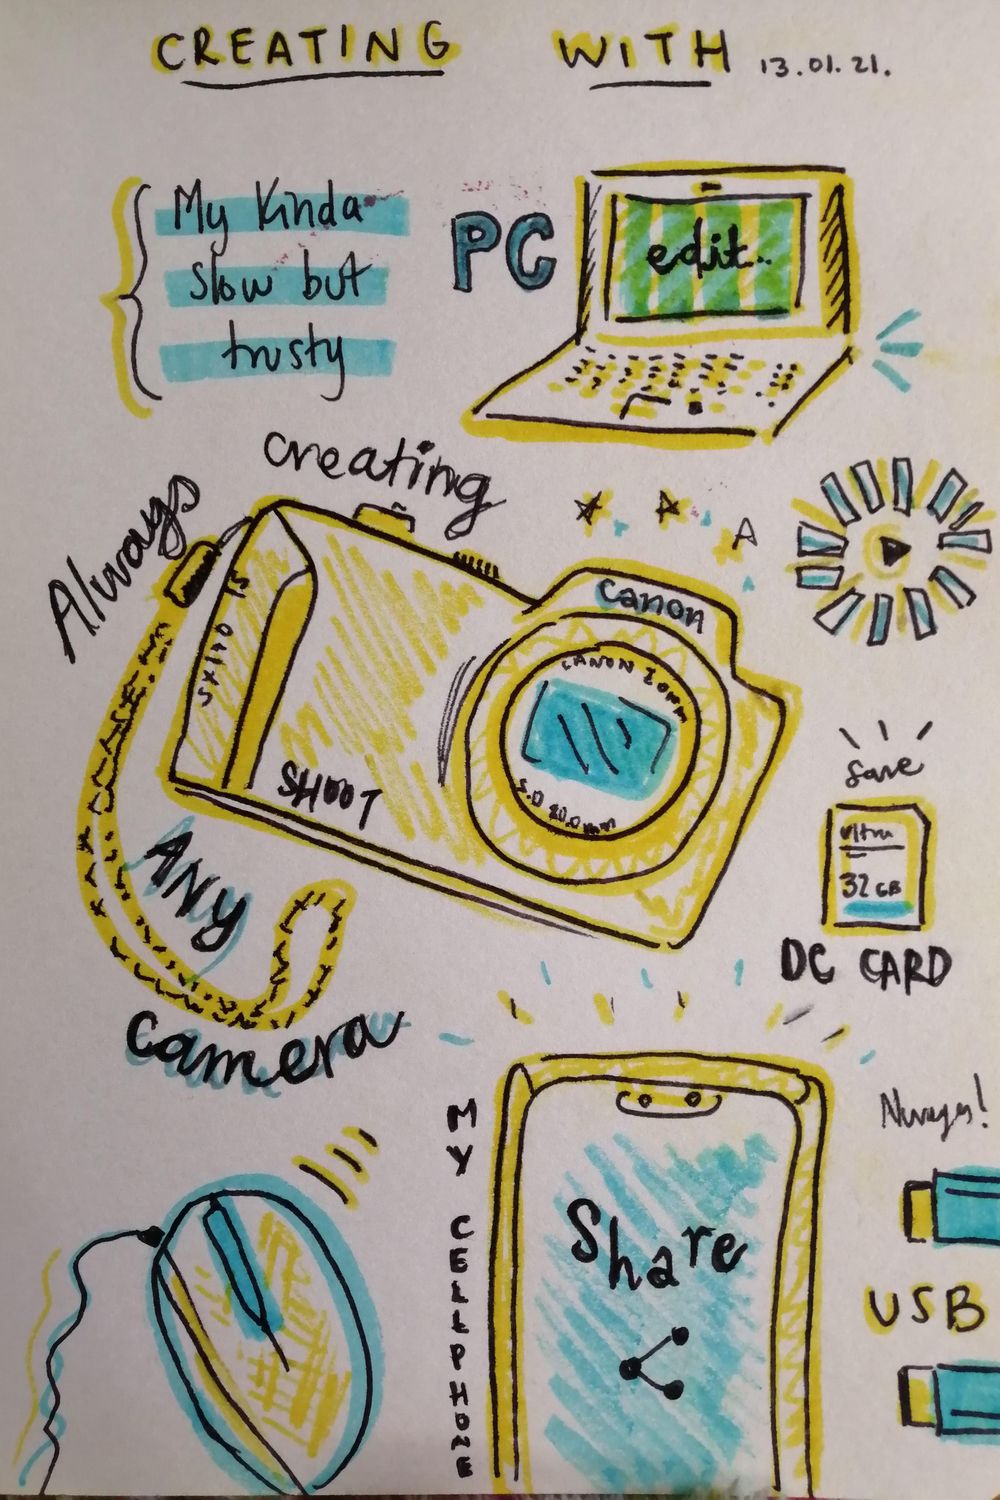 CREATING WITH 13.01.21.
My Kinda
slow but
trusty
PC
edit..
Always
creating
Canon
CANON ZOOM
SX170 IS
5.0 20.0 mm
SHOOT
ANY
camera
Save
32 GB
DC CARD
MY CELLPHONE
Share
USB